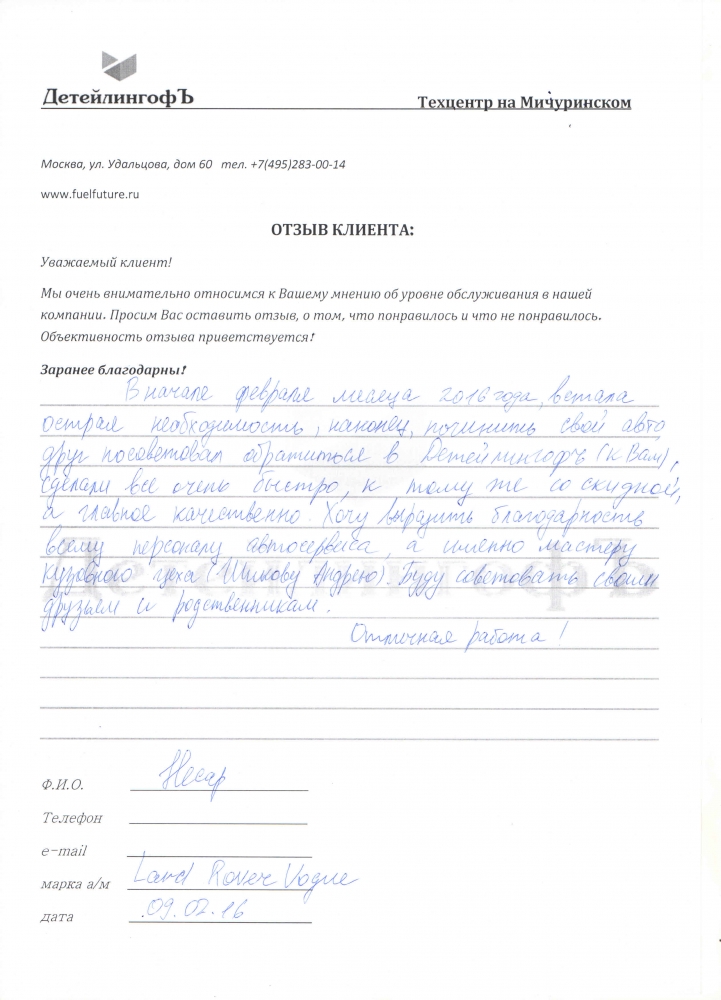 ДетейлингофЪ
Техцентр на Мичуринском
Москва, ул. Удальцова, дом 60 тел. +7(495)283-00-14
www.fuelfuture.ru
ОТЗЫВ КЛИЕНТА:
Уважаемый клиент!
Мы очень внимательно относимся к Вашему мнению об уровне обслуживания в нашей
компании. Просим Вас оставить отзыв, о том, что понравилось и что не понравилось.
Объективность отзыва приветствуется!
Заранее благодарны!
В начале февраля месяца 2016 года, встала
острая необходимость, наконец, починить свой авто
друг посоветовал обратиться в Детейлингофъ (к Вам),
сделали все очень быстро, к тому же со скидкой,
а главное качественно. Хочу выразить благодарность
всему персоналу автосервиса, а именно мастеру
кузовного цеха (Шикову Андрею). Буду советовать своим
друзьям и родственникам.
Отличная работа!
ДетейлингофЪ
Ф.И.О. Несар
Телефон
e-mail
марка а/м Land Rover Vogue
дата 09.02.16